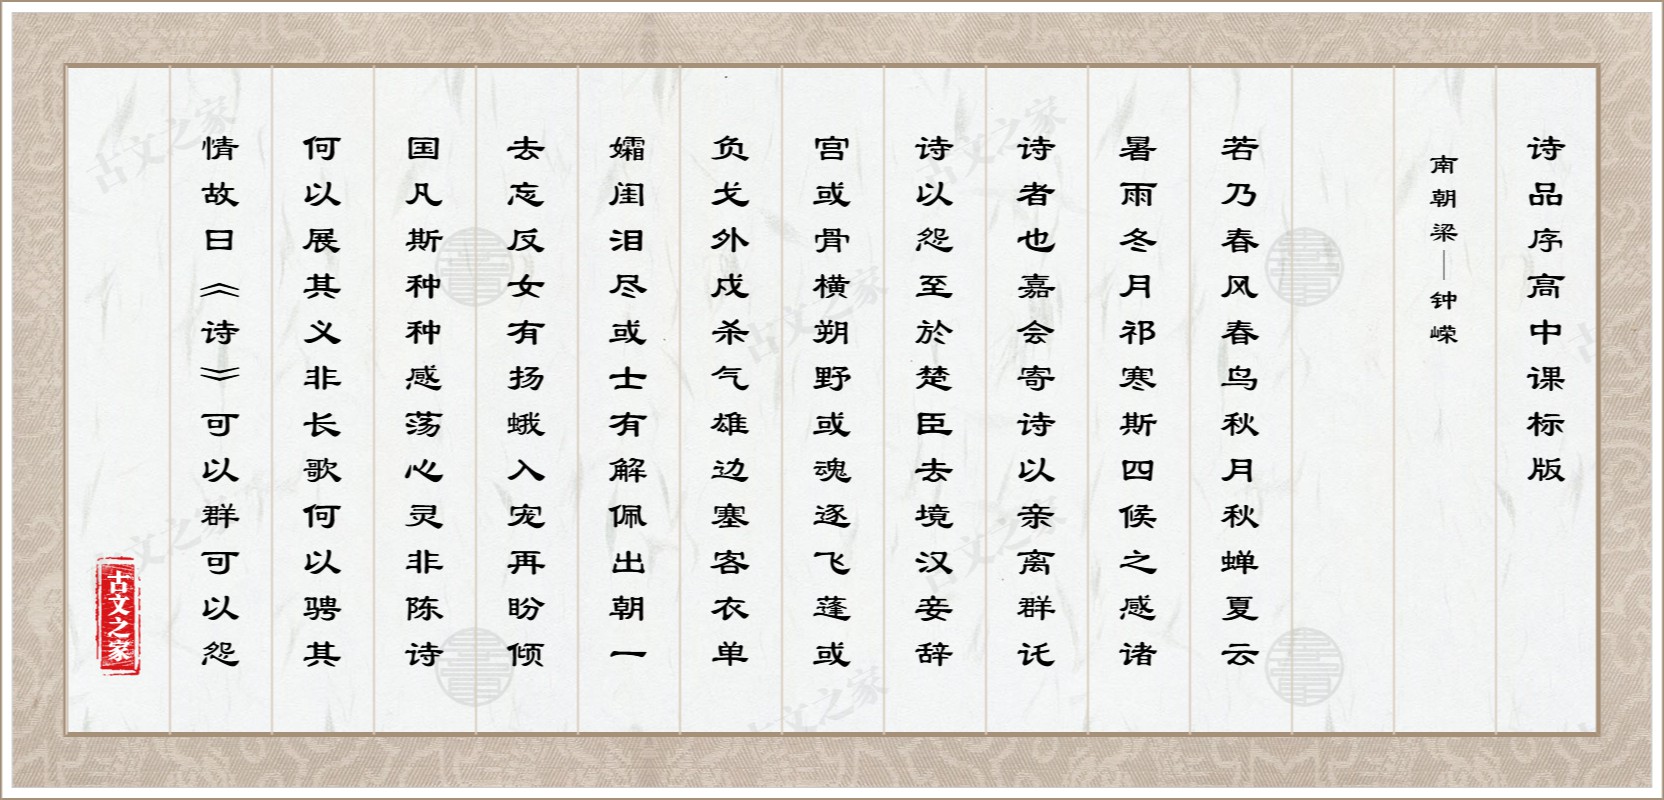 诗品序高中课标版
南朝梁—钟嵘
若乃春风春鸟秋月秋蝉夏云
暑雨冬月祁寒斯四候之感诸
诗者也嘉会寄诗以亲离群讬
诗以怨至於楚臣去境汉妾辞
宫或骨横朔野或魂逐飞蓬或
负戈外戍杀气雄边塞客衣单
孀闺泪尽或士有解佩出朝一
去忘反女有扬蛾入宠再盼倾
国凡斯种种感荡心灵非陈诗
何以展其义非长歌何以骋其
情故曰《诗》可以群可以怨
古文之家